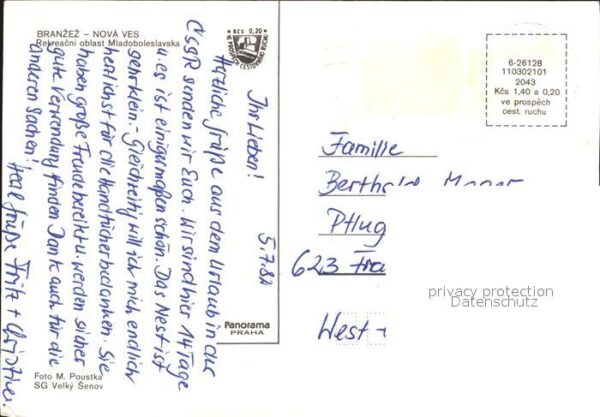 BRANŽEŽ – NOVÁ VES
Rekreační oblast Mladoboleslavska
Kčs 0,20
VE PROSPĚCH CESTOVNÍHO RUCHU
5.7.82
Ihr Lieben!
Herzliche Grüße aus dem Urlaub in der
ČSSR senden wir Euch. Wir sind hier 14 Tage
u. es ist einigermaßen schön. Das Nest ist
sehr klein – Gleichzeitig will ich mich endlich
herzlichst für die Handtücher bedanken. Sie
haben große Freude bereitet u. werden sicher
gute Verwendung finden Dank auch für die
anderen Sachen!
Herzl. Grüße Fritz + Christine.
Foto M. Poustka
SG Velký Šenov
Panorama
PRAHA
6-26128
110302101
2043
Kčs 1,40 a 0,20
ve prospěch
cest. ruchu
Familie
Berthold
Pflug
623 Fra
West-
privacy protection
Datenschutz